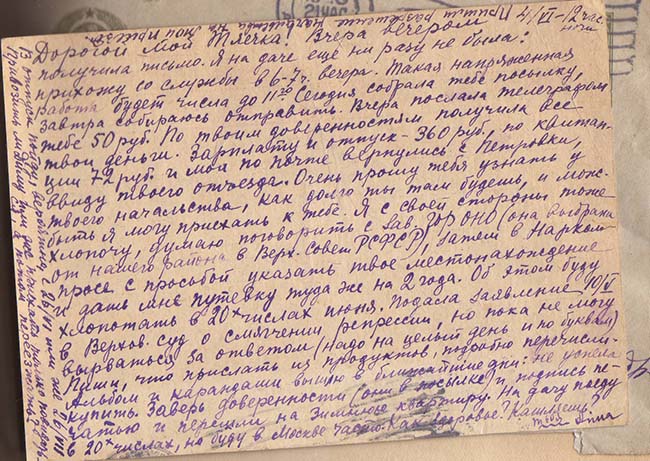 4/VI - 12 час. ночи
Дорогой мой Олечка! Вчера вечером
получила письмо. Я на даче ещё ни разу не была:
прихожу со службы в 6-7 ч. вечера. Такая напряженная
работа будет числа до 11-20 Сегодня собрала тебе посылку,
завтра собираюсь отправить. Вчера послала телеграфом
тебе 50 руб. По твоим доверенностям получила все
твои деньги. Зарплату и отпуск - 360 руб., по квитан-
ции 72 руб. и мои по почте вернулись с Петровки,
ввиду твоего отъезда. Очень прошу тебя узнать у
твоего начальства, как долго ты там будешь, и мож.
быть я могу приехать к тебе. Я с своей стороны тоже
хлопочу, думаю поговорить с зав. ГорОНО (она выбрана
от нашего района в Верх. Совет РСФСР), затем в Нарком-
просе с просьбой указать твое местонахождение
и дать мне путевку туда же на 2 года. Об этом буду
хлопотать в 20х числах июня. Подала заявление 10/V
в Верхов. суд о смягчении репрессии, но пока не могу
вырваться за ответом (надо на целый день и по буквам)
Пиши, что прислать из продуктов, подробно перечисли.
Альбом и карандаши вышлю в ближайшие дни: не успела
купить. Заверь доверенности (они в посылке) и подпись пе-
чатью и перешли на зимнюю квартиру. На дачу поеду
в 20х числах, но буду в Москве часто. Как здоровье? Кашляешь?
твоя